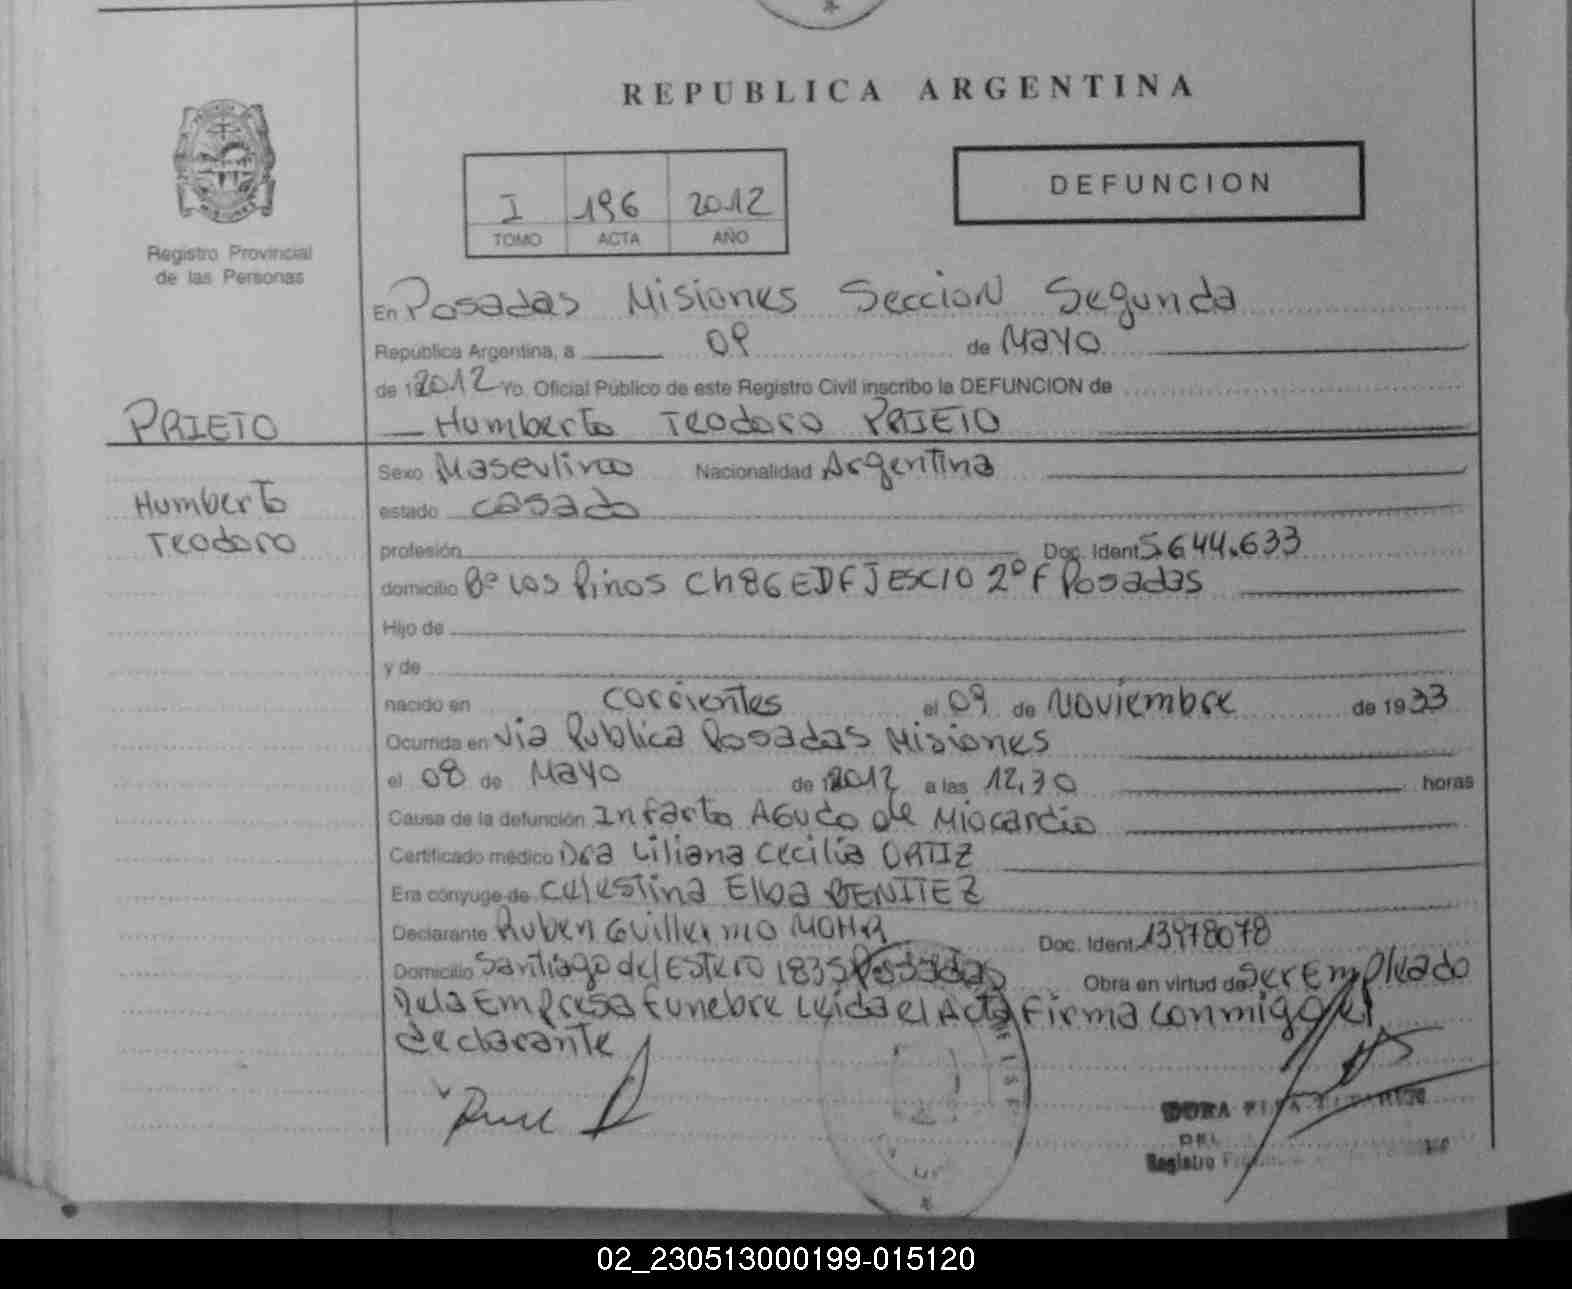 REPUBLICA ARGENTINA
I 196 2012
TOMO ACTA AÑO
DEFUNCION
Registro Provincial
de las Personas
En Posadas Misiones Seccion Segunda
República Argentina, a 09 de Mayo
de 12012 Yo. Oficial Público de este Registro Civil inscribo la DEFUNCION de
PRIETO
Humberto Teodoro PRIETO
Humberto
Teodoro
Sexo Masculino Nacionalidad Argentina
estado casado
profesión Doc. Ident 5.644.633
domicilio Bº Los Pinos Ch 86 EDF J ESC 10 2º F Posadas
Hijo de
y de
nacido en Corrientes el 09 de Noviembre de 1933
Ocurrida en Via Publica Posadas Misiones
el 08 de Mayo de 12012 a las 12,30 horas
Causa de la defunción Infarto Agudo de Miocardio
Certificado médico Dra Liliana Cecilia ORTIZ
Era cónyuge de Celestina Elba BENITEZ
Declarante Ruben Guillermo MOHR Doc. Ident. 13978078
Domicilio Santiago del Estero 1835 Posadas Obra en virtud de Ser Empleado
De la Empresa Funebre Leida el Acta Firma conmigo el
declarante
DORA
DEL
Registro
02_230513000199-015120